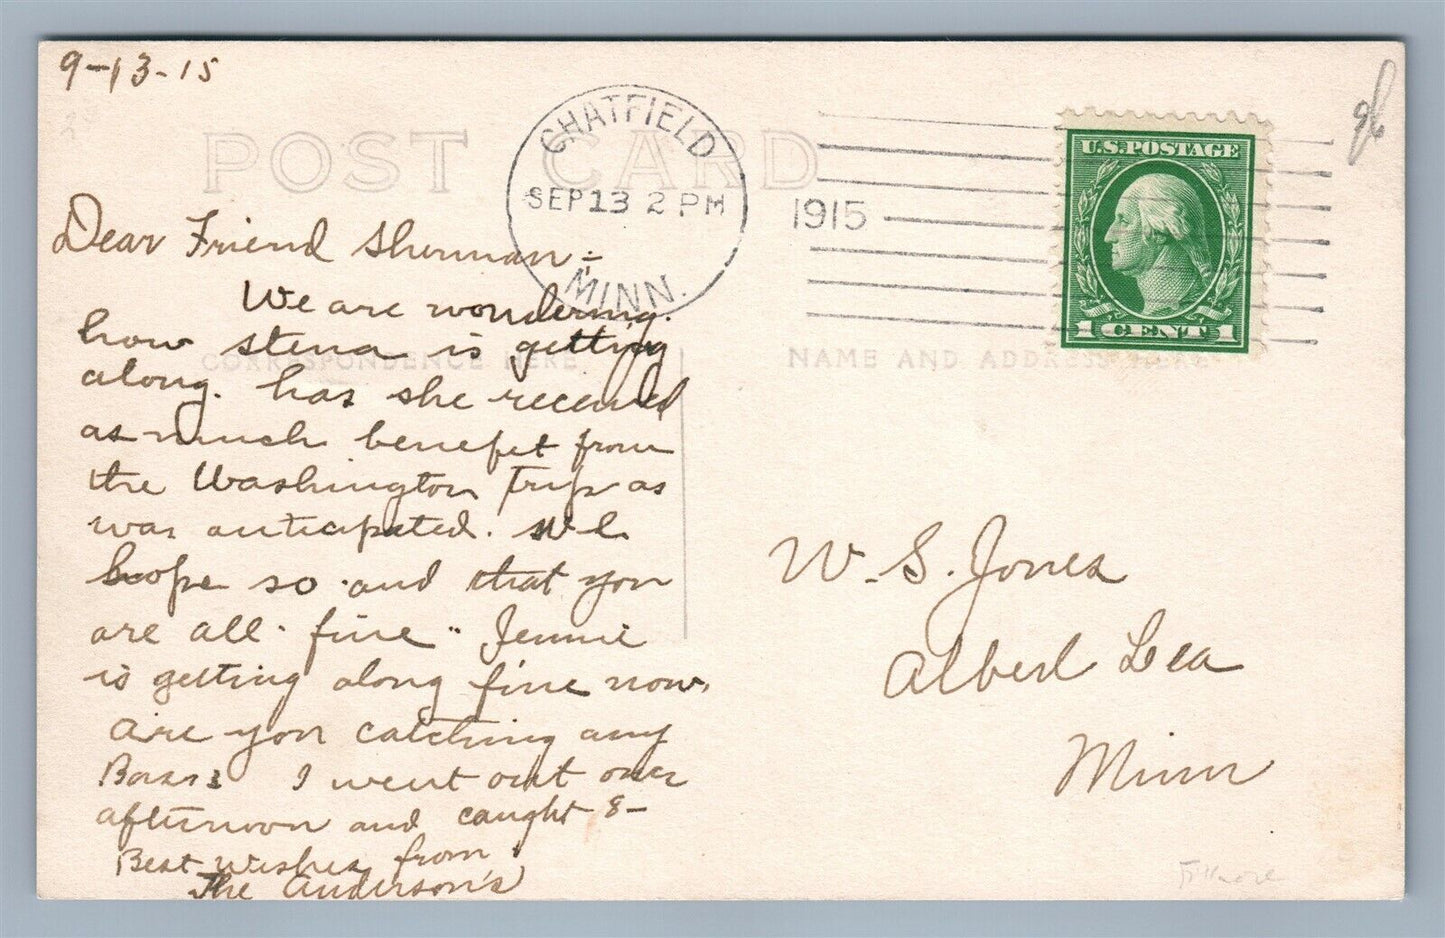 9-13-15
POST CARD
CHATFIELD
SEP 13 2 PM
MINN.
1915
U.S. POSTAGE
1 CENT 1
CORRESPONDENCE HERE
NAME AND ADDRESS HERE
Dear Friend Sherman:-
We are wondering
how stena is getting
along. has she received
as much benefit from
the Washington Trip as
was anticipated. We
hope so. and that you
are all fine. Jennie
is getting along fine now.
are you catching any
I went out one
afternoon and caught 8-
Best Wishes from
The Anderson's
W. S. Jones
Albert Lea
Minn
Fillmore